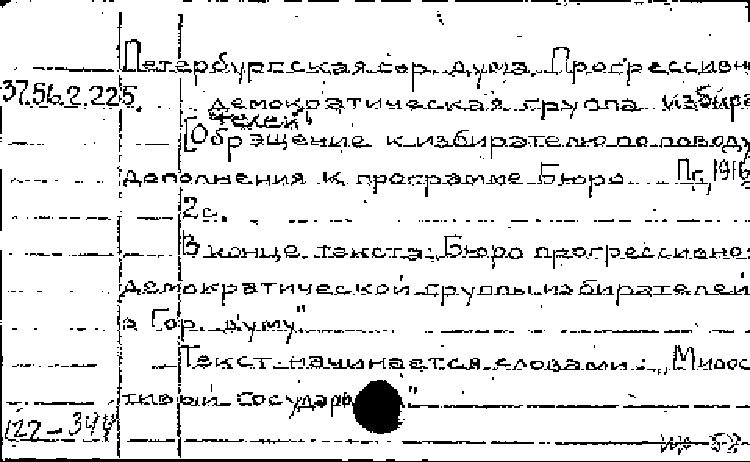 Петербургская гор. дума. Прогрессивн
37.56.2.225.
демократическая группа избира
телей
[Обращение к избирателю по поводу
дополнения к программе Бюро Пг., 1916
2 с.
В конце текста: Бюро прогрессивно-
демократической группы избирателей
в Гор. думу"
Текст начинается словами: „Милос
тивый государ "
122-344